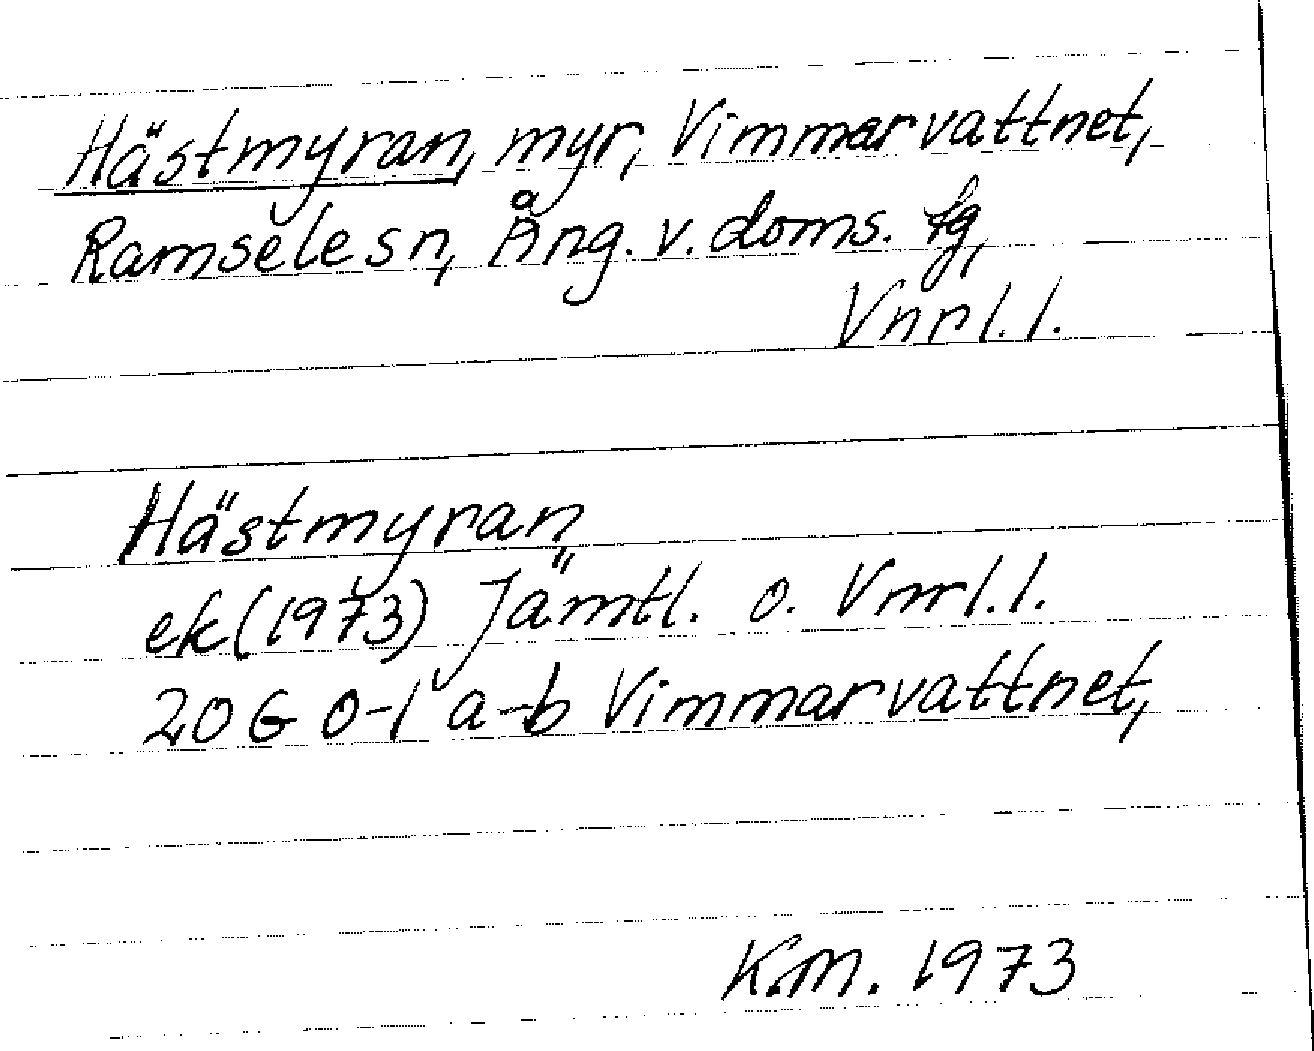 Hästmyran, myr, Vimmarvattnet,
Ramsele sn, Ång. v. doms. fg,
Vnrl. l.
Hästmyran
ek (1973) Jämtl. o. Vnrl. l.
20 G 0-1 a-b Vimmarvattnet,
K.m. 1973